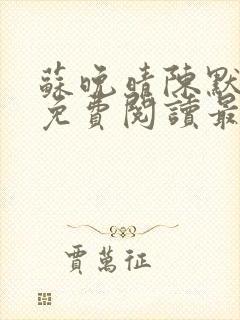 蘇晚晴陳默
免費閱讀最
賈萬征